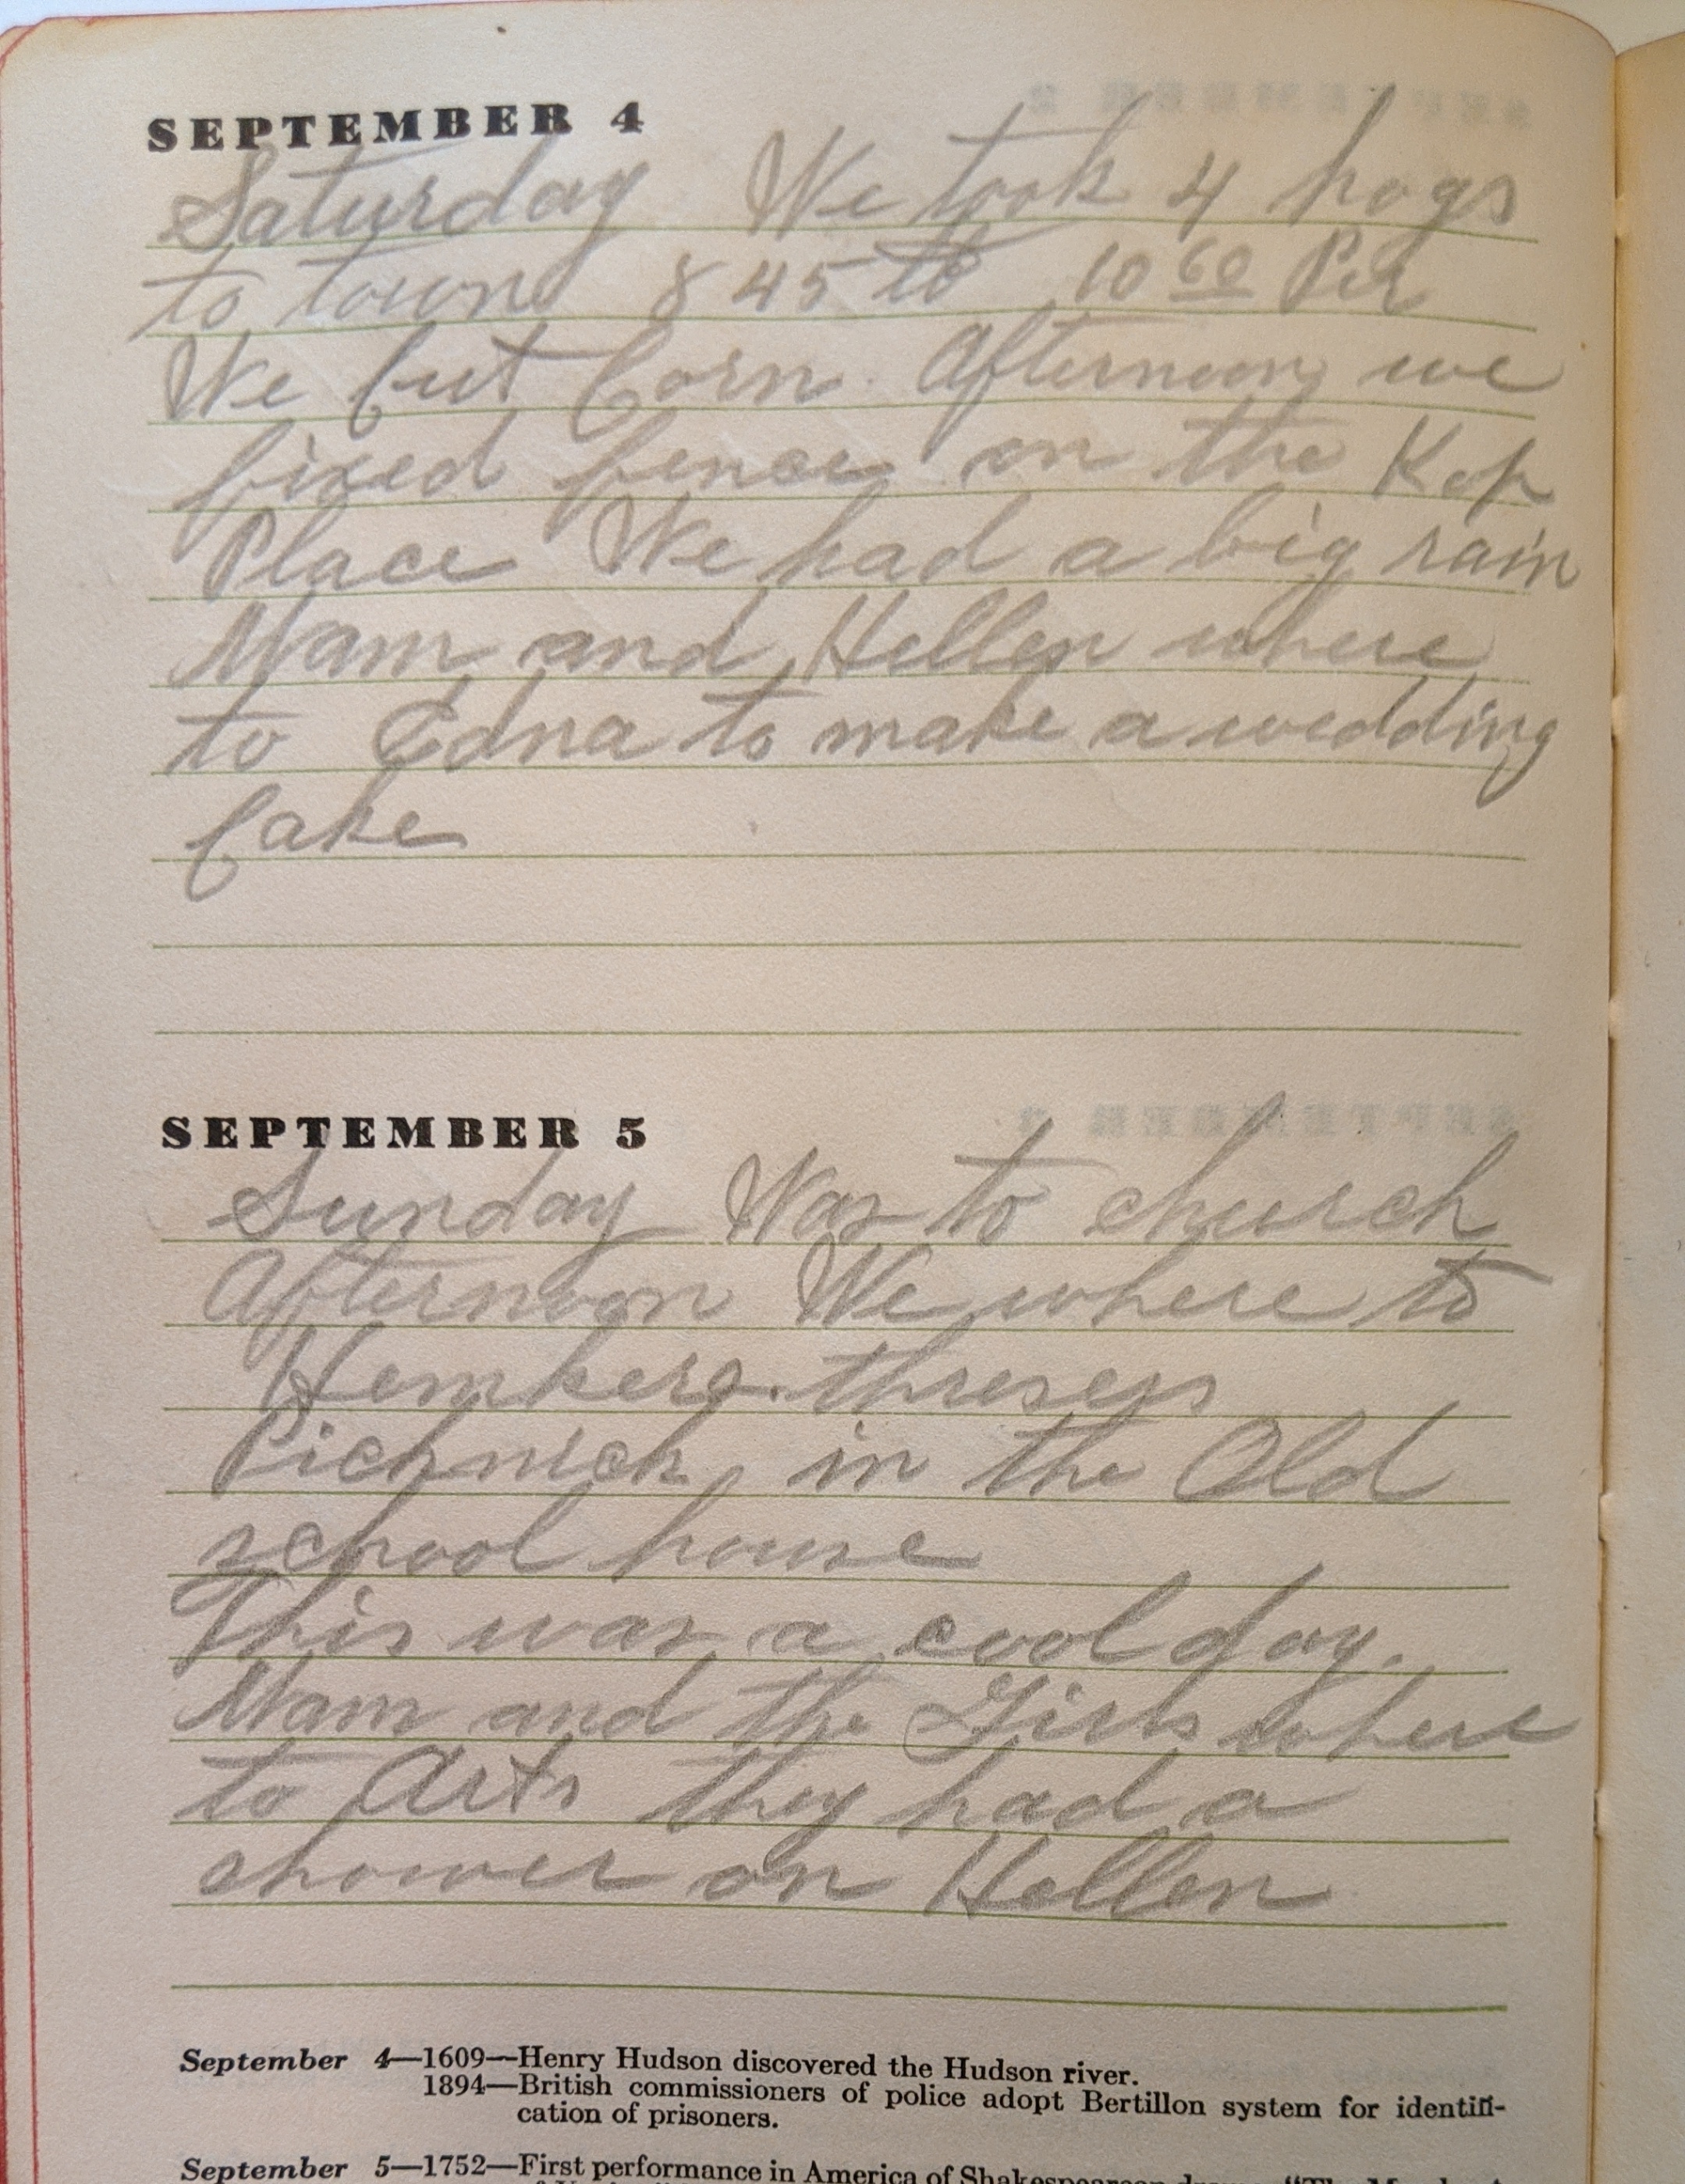 SEPTEMBER 4
Saturday We took 4 hogs
to town 8 45 to 10 60 Per
We Cut Corn. Afternoon we
fixed fence on the Kop
Place We had a big rain
Mam and Hellen where
to Edna to make a wedding
Cake
SEPTEMBER 5
Sunday Was to church
Afternoon We where to
Hemkers. thresers
Picknick in the Old
school house
This was a cool day.
Mam and the Girls where
to Arts they had a
shower on Hellen
September 4—1609—Henry Hudson discovered the Hudson river.
1894—British commissioners of police adopt Bertillon system for identifi-
cation of prisoners.
September 5—1752—First performance in America of Shakespearean drama, "The Merchant